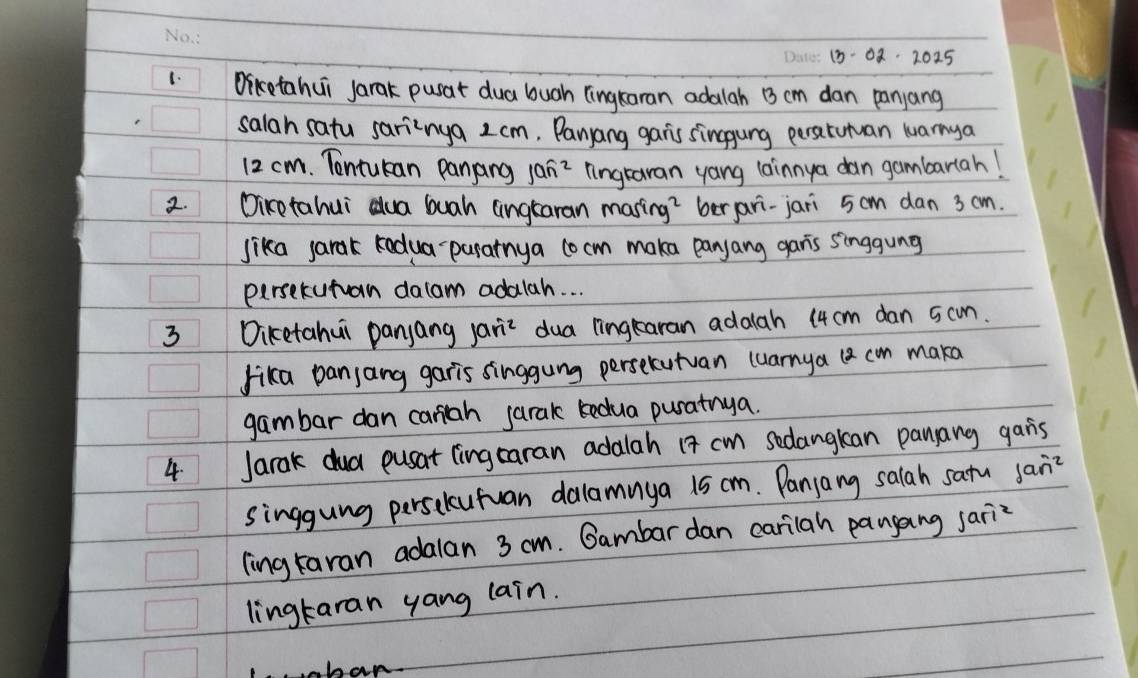 No.:
Date: 13 - 02 - 2025
1. Diketahui jarak pusat dua buah lingkaran adalah 13 cm dan panjang
salah satu jari²nya 2 cm. Panjang garis singgung persekutuan luarnya
12 cm. Tentukan panjang jari² lingkaran yang lainnya dan gambarlah!
2. Diketahui dua buah lingkaran masing² berjari-jari 5 cm dan 3 cm.
Jika jarak kedua pusatnya 10 cm maka panjang garis singgung
persekutuan dalam adalah...
3 Diketahui panjang jari² dua lingkaran adalah 14 cm dan 5 cm.
Jika panjang garis singgung persekutuan luarnya 12 cm maka
gambar dan carilah jarak kedua pusatnya.
4. Jarak dua pusat lingkaran adalah 17 cm sedangkan panjang garis
singgung persekutuan dalamnya 15 cm. Panjang salah satu jari²
lingkaran adalah 3 cm. Gambar dan carilah panjang jari²
lingkaran yang lain.